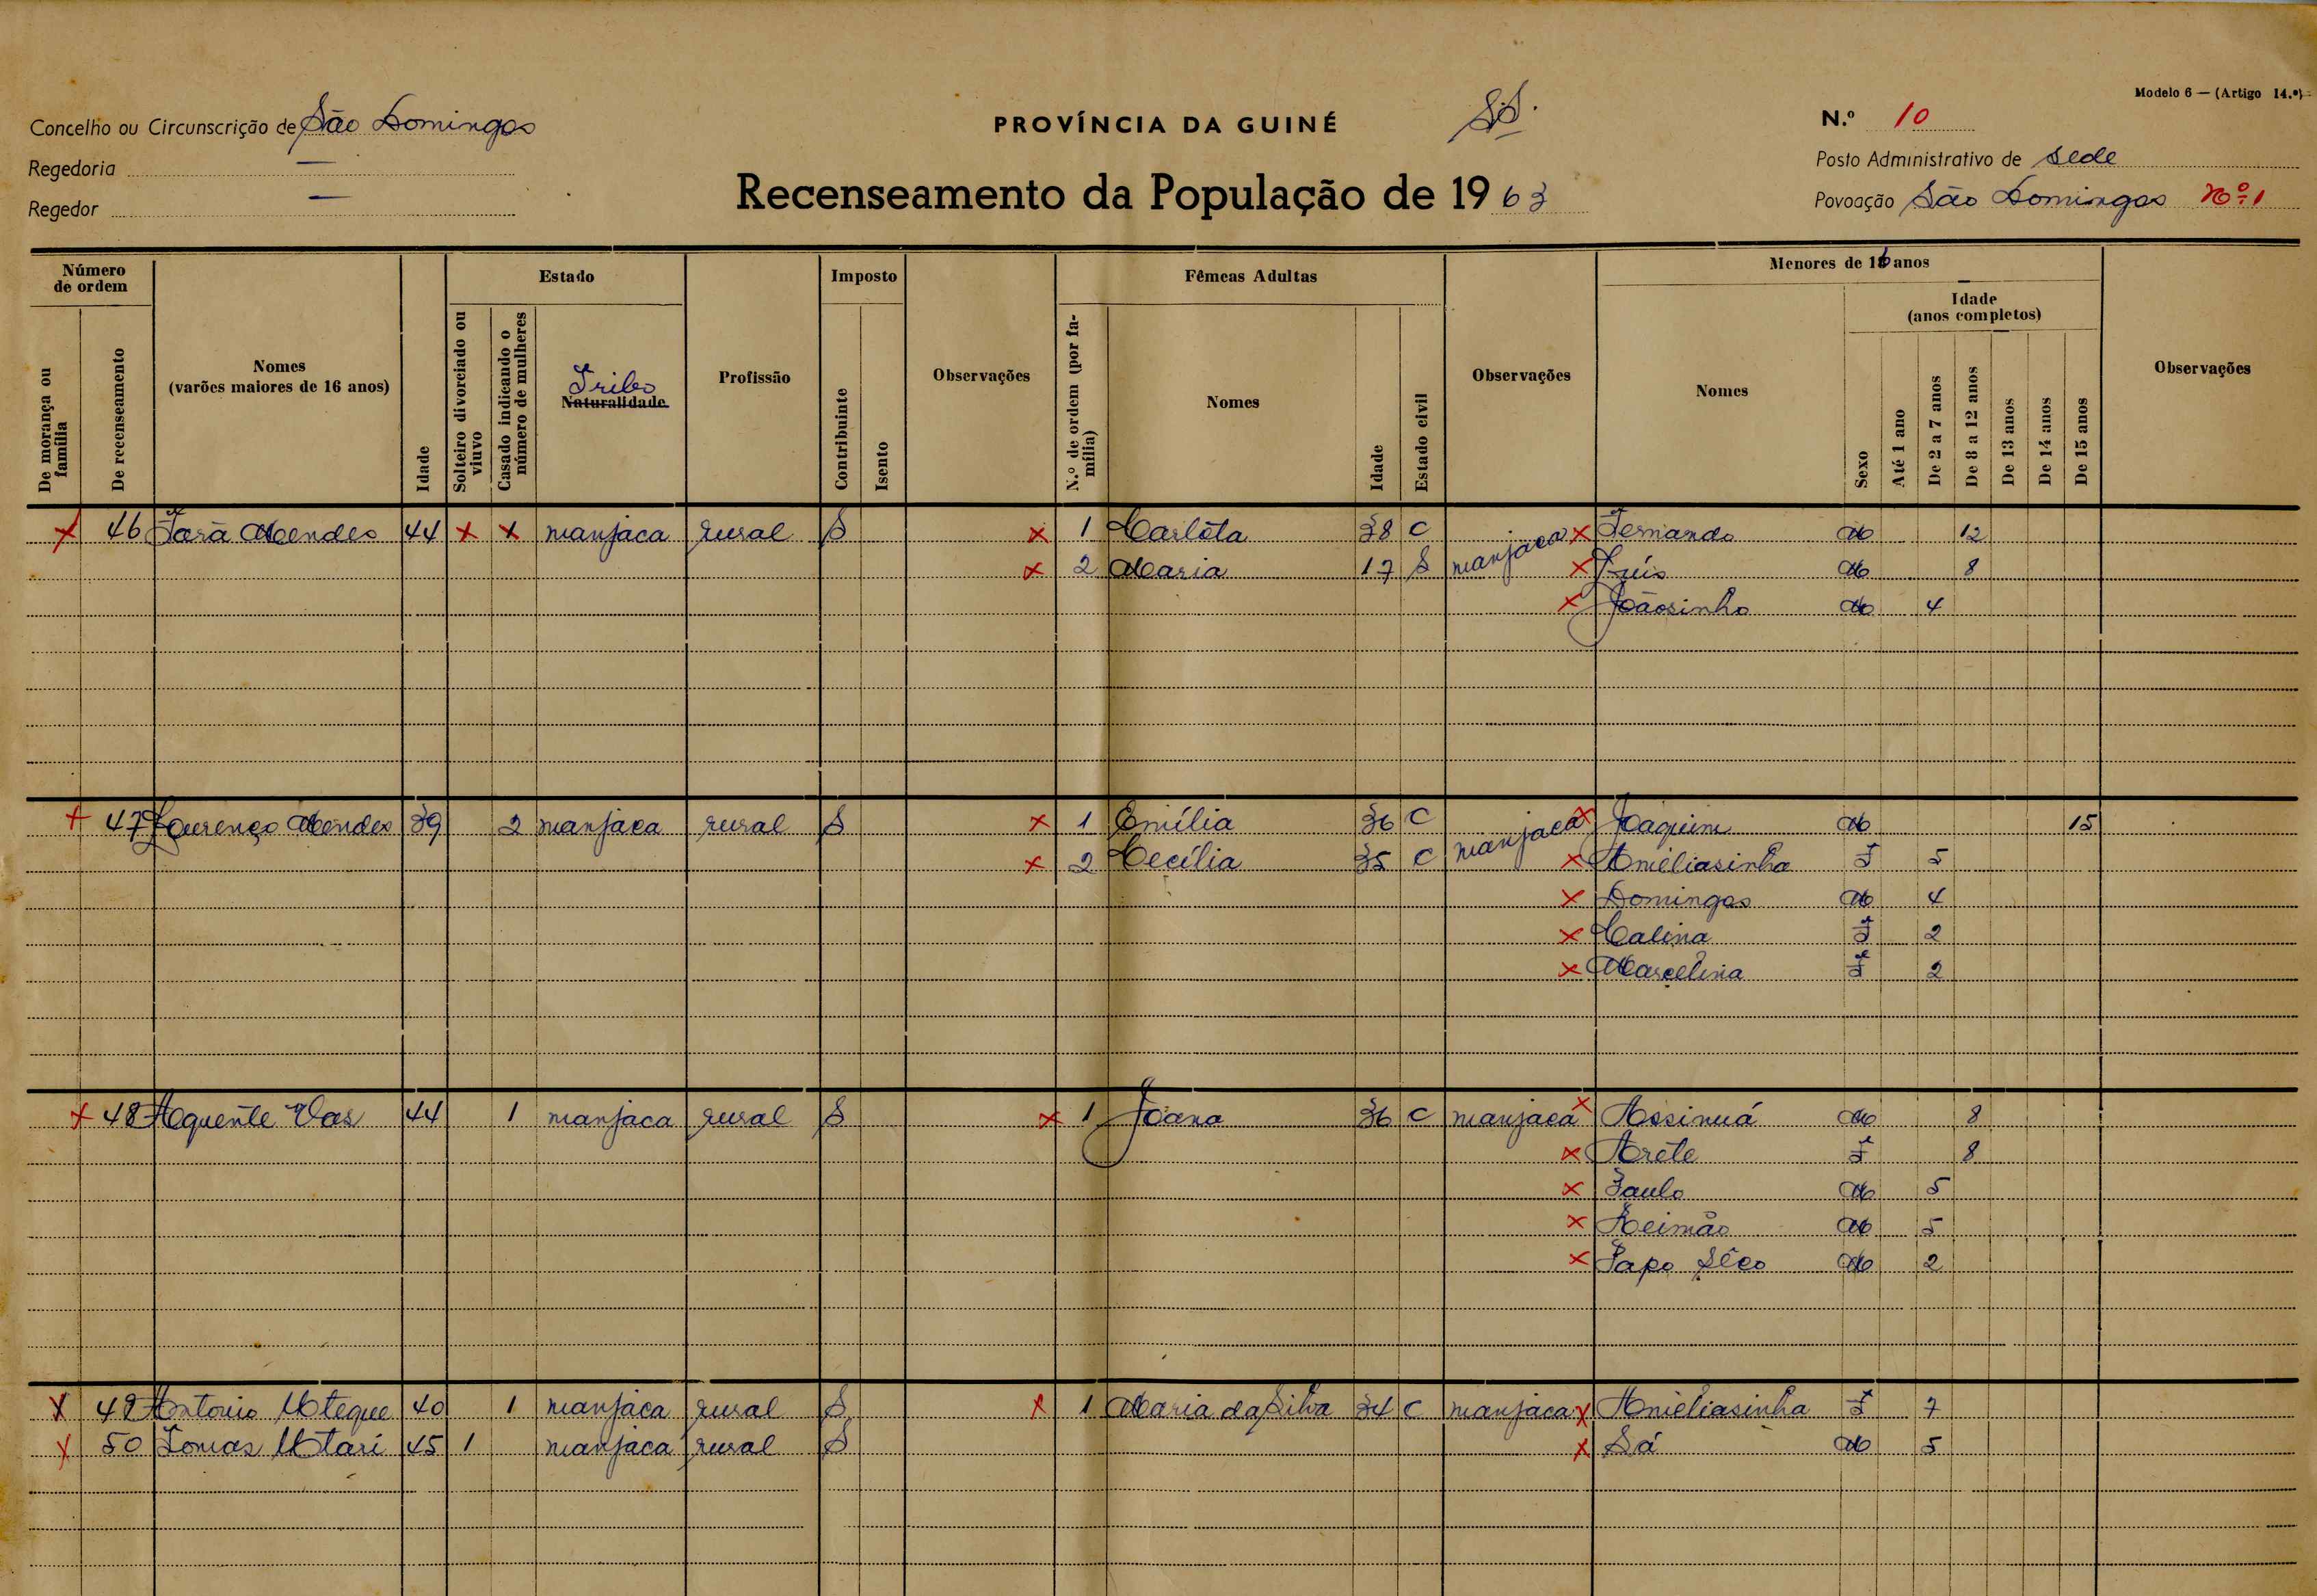 Modelo 6 — (Artigo 14.º)
Concelho ou Circunscrição de São Domingos
PROVÍNCIA DA GUINÉ
N.º 10
Regedoria —
Posto Administrativo de Sede
Regedor —
Recenseamento da População de 1963
Povoação São Domingos Nº 1
Número de ordem
Estado
Imposto
Fêmeas Adultas
Menores de 16 anos
Idade (anos completos)
De morança ou família
De recenseamento
Nomes (varões maiores de 16 anos)
Idade
Solteiro divorciado ou viuvo
Casado indicando o número de mulheres
Tribo
Naturalidade
Profissão
Contribuinte
Isento
Observações
N.º de ordem (por família)
Nomes
Idade
Estado civil
Observações
Nomes
Sexo
Até 1 ano
De 2 a 7 anos
De 8 a 12 anos
De 13 anos
De 14 anos
De 15 anos
Observações
x 46 Mendes 44 x x manjaca rural S x 1 Carlóta 38 C manjaca x Fernando M 12
x 2 Maria 17 S x Luís M 8
x Joãosinho M 4
x 47 Lourenço Mendes 39 2 manjaca rural S x 1 Emília 36 C manjaca x Joaquim M 15
x 2 Cecília 35 C x Améliasinha F 5
x Domingos M 4
x Calina F 2
x Marcelina F 2
x 48 Aquente Vas 44 1 manjaca rural S x 1 Joana 36 C manjaca x Assinuá M 8
x Aréte F 8
x Paulo M 5
x M 5
x Papo Sêco M 2
x 49 Antonio Uteque 40 1 manjaca rural S x 1 Maria da Silva 34 C manjaca x Améliasinha F 7
x 50 Tomas 45 1 manjaca rural S x Sá M 5